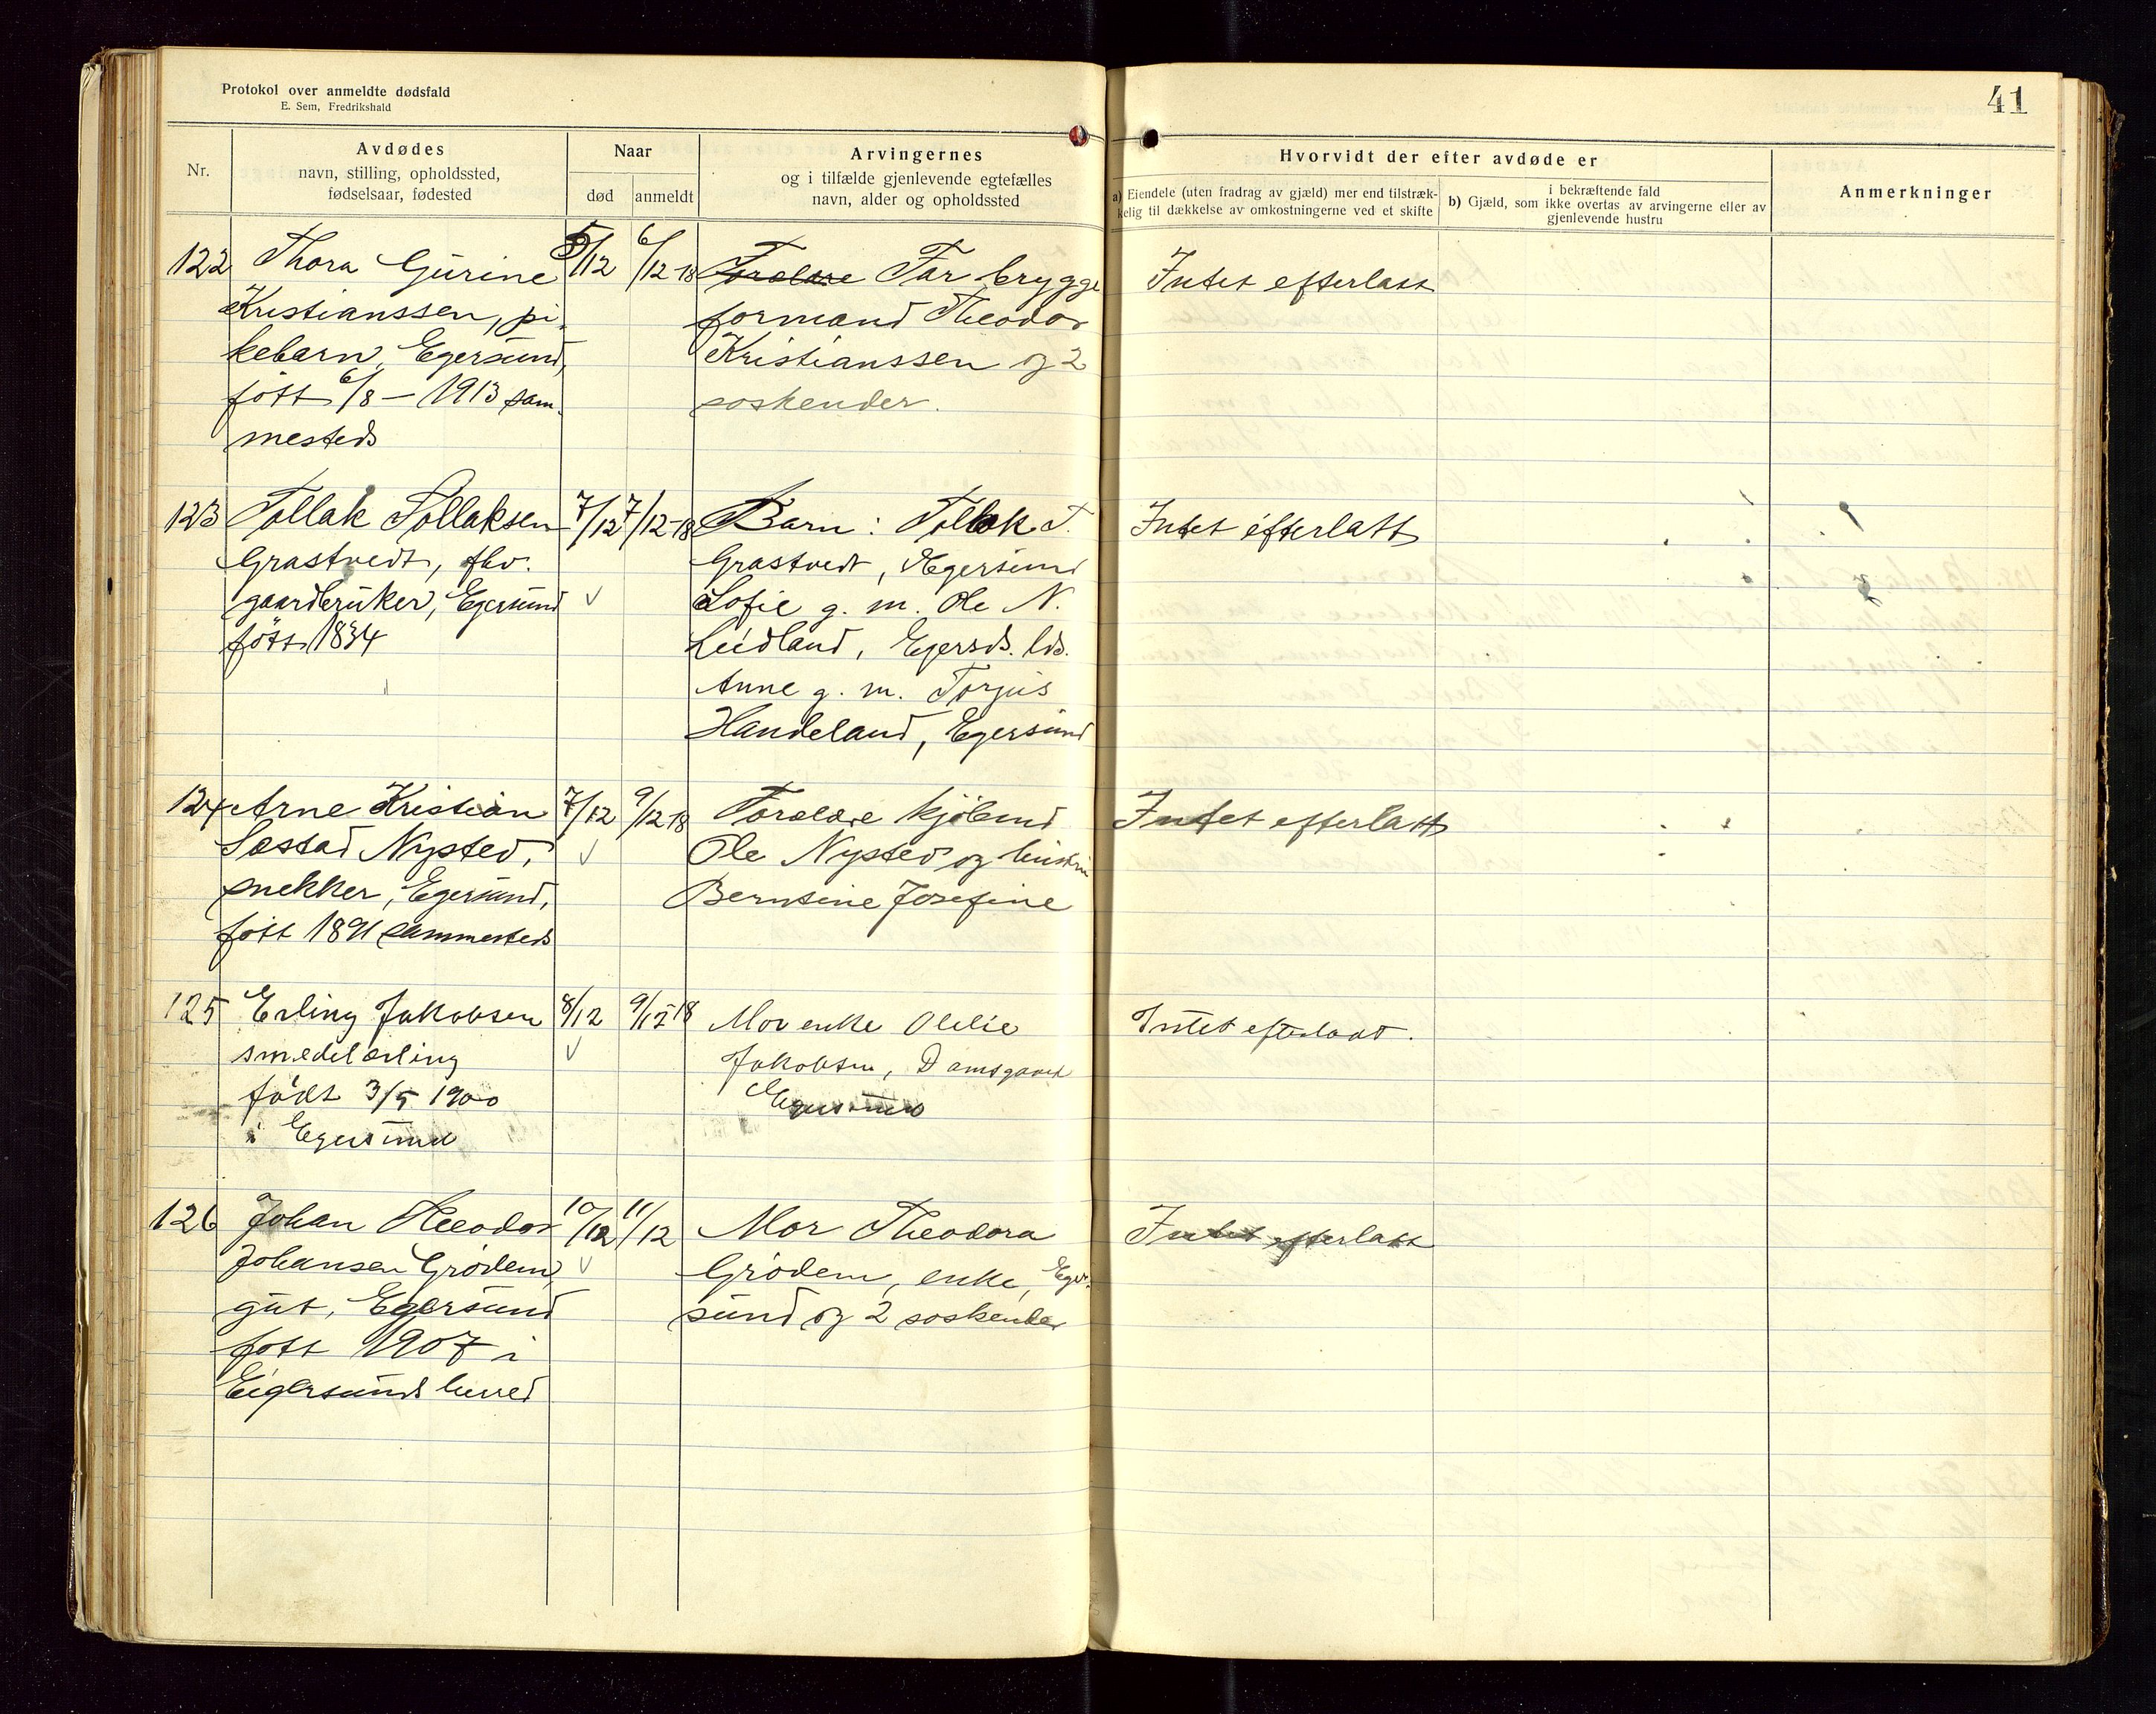 Protokol over anmeldte dødsfald
E. Sem, Fredrikshald
41
Nr.
Avdødes
navn, stilling, opholdssted,
fødselsaar, fødested
Naar
død
anmeldt
Arvingernes
og i tilfælde gjenlevende egtefælles
navn, alder og opholdssted
Hvorvidt der efter avdøde er
a) Eiendele (uten fradrag av gjæld) mer end tilstræk-
kelig til dækkelse av omkostningerne ved et skifte
i bekræftende fald
b) Gjæld, som ikke overtas av arvingerne eller av
gjenlevende hustru
Anmerkninger
122
Thora Gurine
Kristianssen, pi-
kebarn, Egersund,
fött 6/8 - 1913 sam-
mesteds
5/12
6/12-18
Forældre Far brygge
formand Theodor
Kristianssen og 2
søskender.
Intet efterlatt
123
Tollak Tollaksen
Grastvedt, fhv.
gaardbruker, Egersund
fött 1834
7/12
7/12-18
Barn: Tollak T.
Grastvedt, Egersund
Sofie g. m. Ole N.
Leidland, Egersds. lds.
Anne g. m. Torjus
Handeland, Egersund
Intet efterlatt
124
Arne Kristian
Sæstad Nysted,
snekker, Egersund,
fött 1891 sammesteds
7/12
9/12-18
Forældre kjöbmd
Ole Nysted og hustru
Berntine Josefine
Intet efterlatt
125
Erling Jakobsen
smedelærling
født 3/5 1900
i Egersund
8/12
9/12 18
Mor enke Olelie
Jakobsen, Damsgaard
Egersund
Intet efterladt.
126
Johan Theodor
Johansen Grödem,
gut, Egersund
fött 1907 i
Eigersund herred
10/12
11/12
Mor Theodora
Grödem, enke, Eger-
sund og 2 søskender
Intet efterlatt